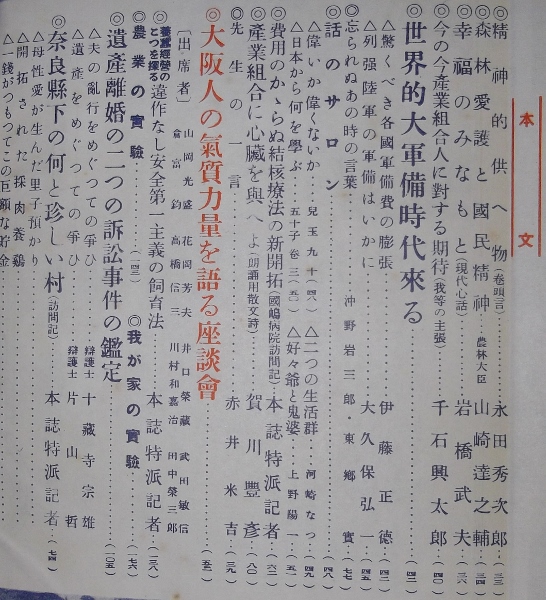 本文
◎精神的供へ物(卷頭言)……永田秀次郎…(三三)
◎森林愛護と國民精神 農林大臣 山崎達之輔…(三四)
◎幸福のみなもと(現代心話)……岩橋武夫…(三六)
◎今の今產業組合人に對する期待(我等の主張)……千石興太郎…(四〇)
◎世界的大軍備時代來る……(四二)
△驚くべき各國軍備費の膨張……伊藤正德…(四二)
△列强陸軍の軍備はいかに……大久保弘一…(四五)
◎忘られぬあの時の言葉……沖野岩三郎・東鄕實…(七七)
◎話のサロン……(四八)
△偉いか偉くないか…兒玉九十…(四八) △二つの生活群……河崎なつ…(四九)
△日本から何を學ぶ…五十子卷三…(五〇) △好々爺と鬼婆……上野陽一…(五一)
◎費用のかゝらぬ結核療法の新開拓(國嶋病院訪問記)本誌特派記者…(六二)
◎產業組合に心臟を與へよ(朗誦用散文詩)……賀川豐彥…(八〇)
◎先生の一言……赤井米吉…(三九)
◎大阪人の氣質力量を語る座談會……(五二)
〔出席者〕山岡光盛 花岡芳夫 井口榮藏 武田敏信
倉富鈞 高橋信三 川村和嘉治 田中榮三郎
◎養蠶經營のこつを探る 違作なし安全第一主義の飼育法……本誌特派記者…(三八)
◎農業の實驗……(一四三) ◎我が家の實驗……(一七六)
◎遺產離婚の二つの訴訟事件の鑑定……(一〇五)
△夫の亂行をめぐつての爭ひ……辯護士 十藏寺宗雄
△遺產をめぐつての爭ひ……辯護士 片山哲
◎奈良縣下の何と珍しい村(訪問記)……本誌特派記者…(七四)
△母性愛が生んだ里子預かり
△開拓された採肉養鷄
△一錢がつもつてこの巨額な貯金